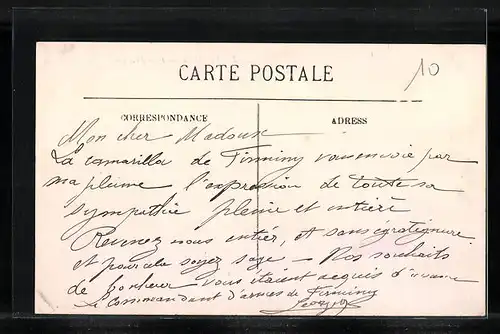 10
CARTE POSTALE
CORRESPONDANCE
ADRESS
Mon cher Madoux
La camarilla de Firminy vous envoie par
ma plume l'expression de toute sa
sympathie pleine et entière
Revenez nous entier, et sans egratignure
et pour cela soyez sage – Nos souhaits
de bonheur vous étaient acquis d'avance
Le Commandant d'armes de Firminy